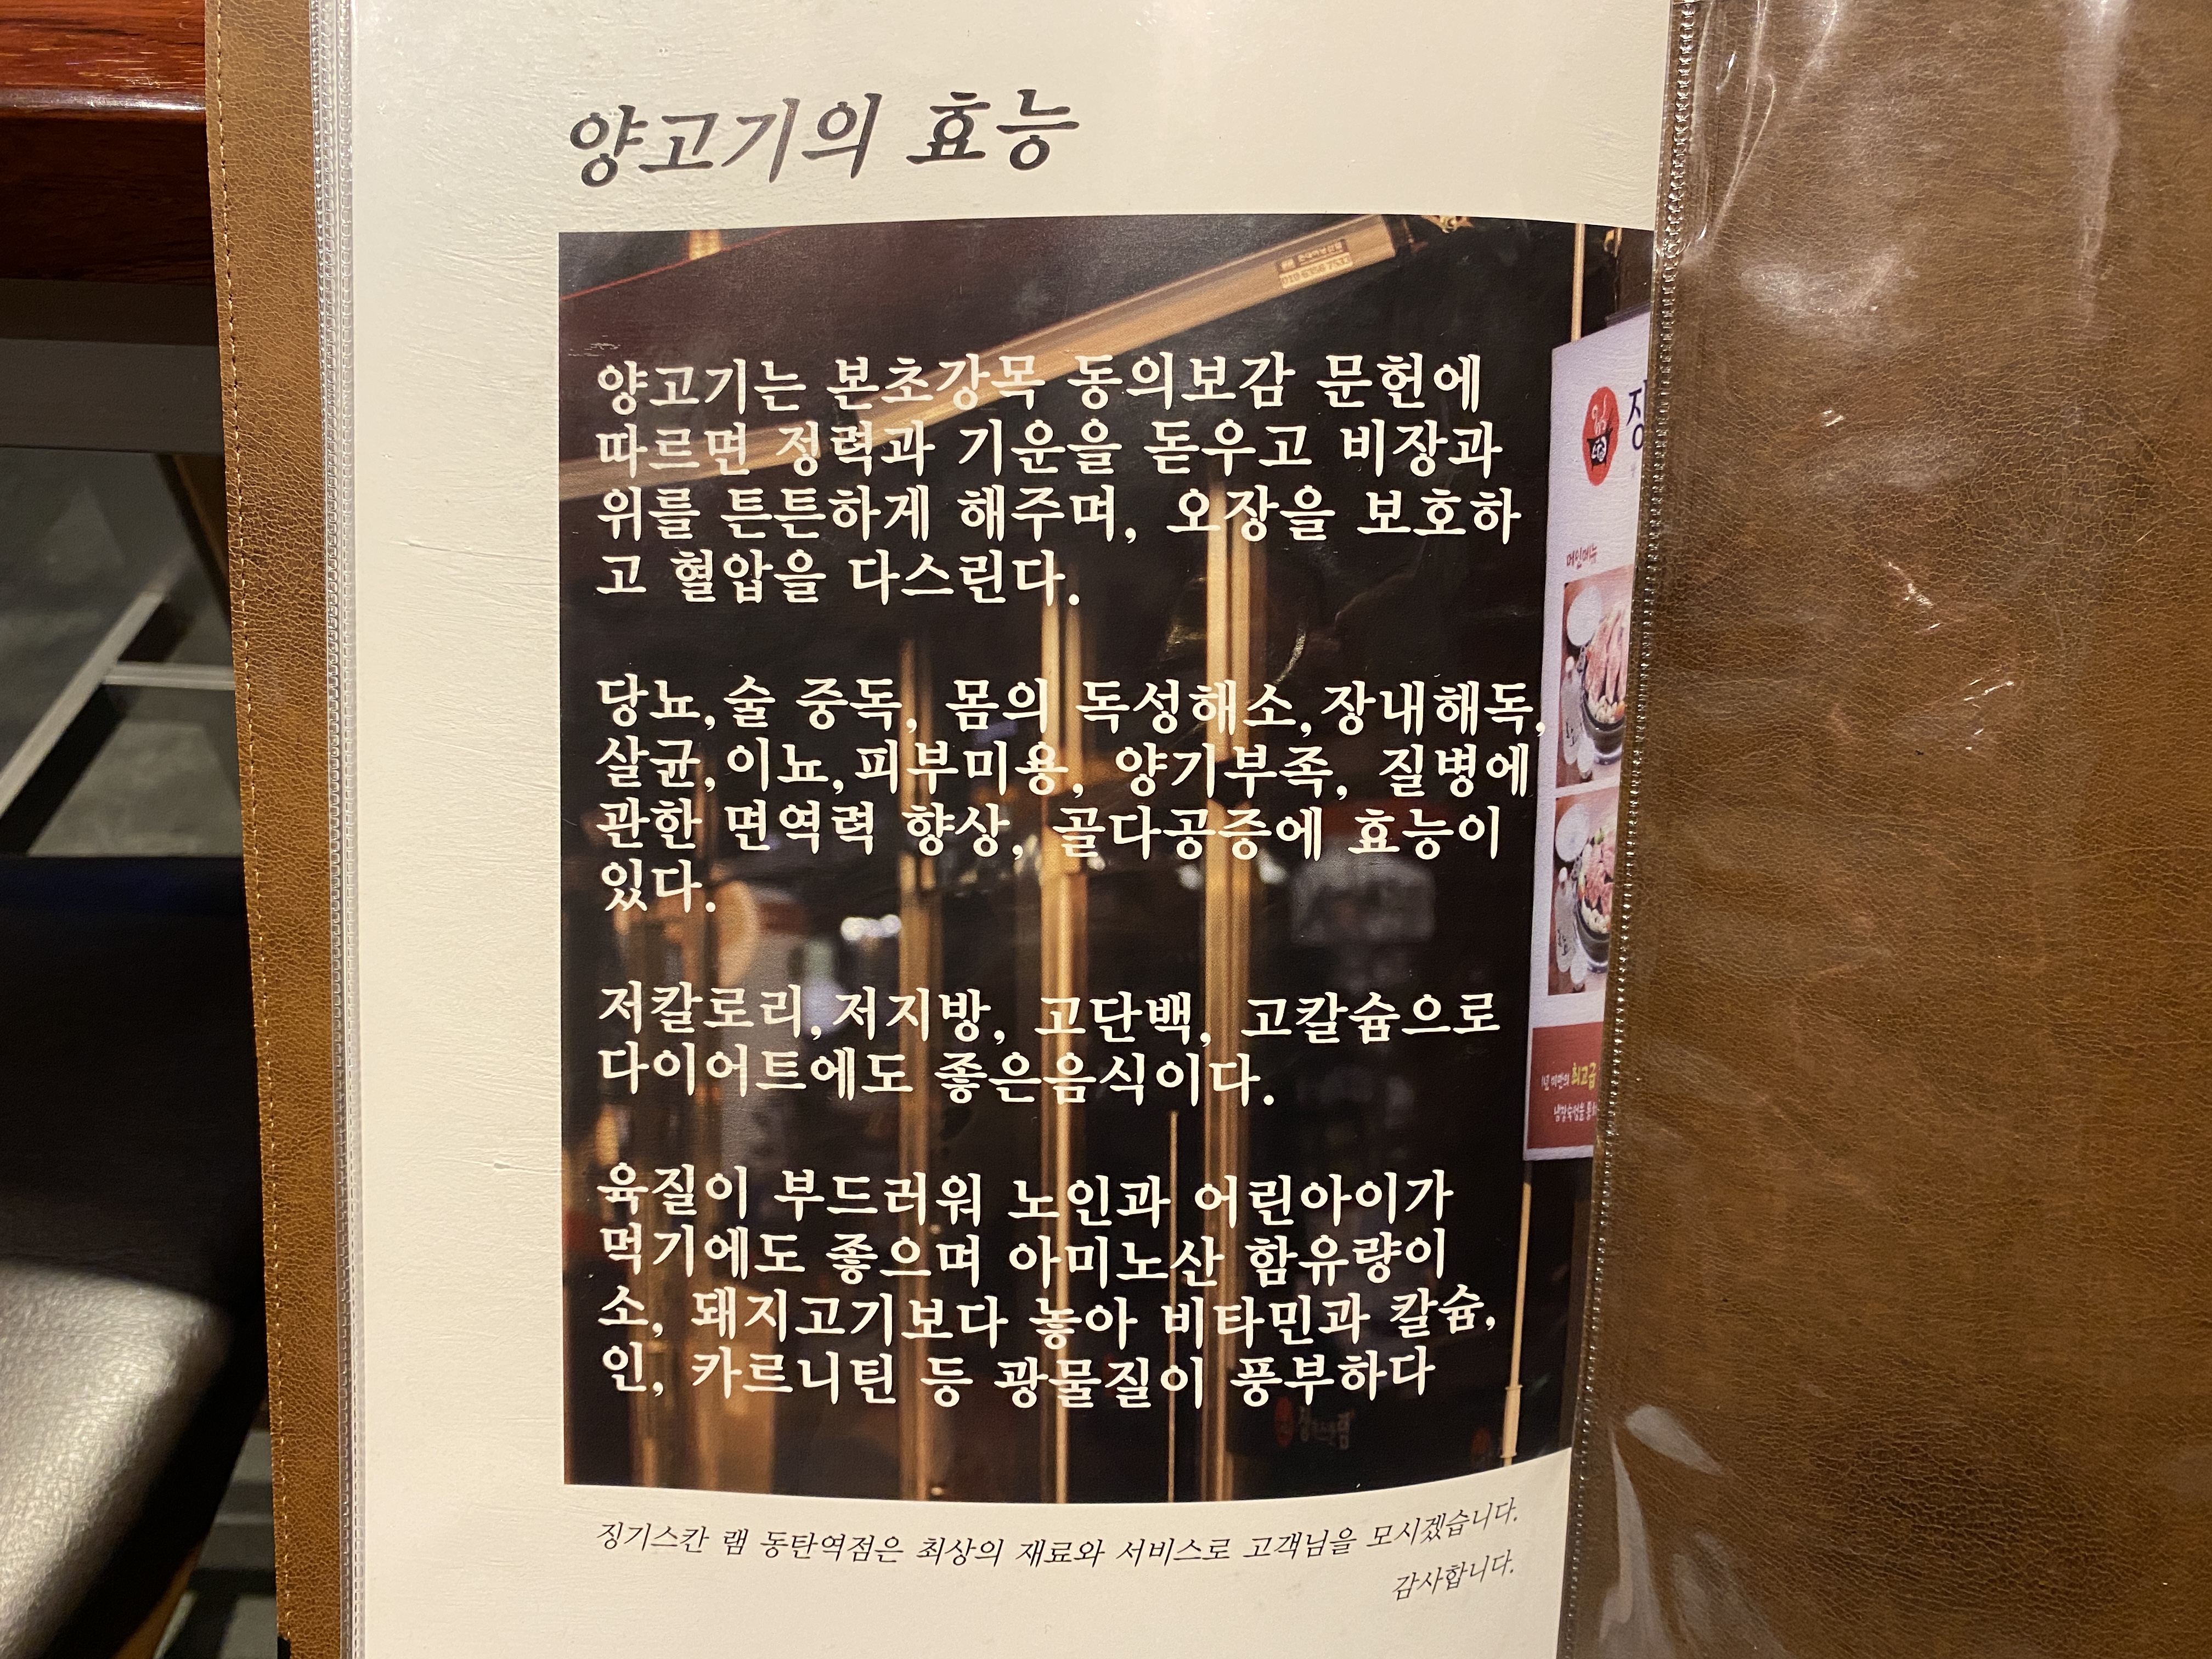 양고기의 효능
양고기는 본초강목 동의보감 문헌에
따르면 정력과 기운을 돋우고 비장과
위를 튼튼하게 해주며, 오장을 보호하
고 혈압을 다스린다.
당뇨,술 중독, 몸의 독성해소,장내해독,
살균,이뇨,피부미용, 양기부족, 질병에
관한 면역력 향상, 골다공증에 효능이
있다.
저칼로리,저지방, 고단백, 고칼슘으로
다이어트에도 좋은음식이다.
육질이 부드러워 노인과 어린아이가
먹기에도 좋으며 아미노산 함유량이
소, 돼지고기보다 놓아 비타민과 칼슘,
인, 카르니틴 등 광물질이 풍부하다
메인메뉴
1년 미만의 최고급
징기스칸 램 동탄역점은 최상의 재료와 서비스로 고객님을 모시겠습니다.
감사합니다.